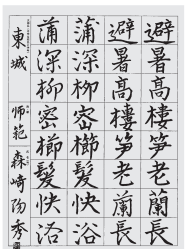 避暑高樓笋老蘭長
避暑高樓笋老蘭長
蒲深柳密櫛髮快浴
蒲深柳密櫛髮快浴
東城
師範
森崎陶秀